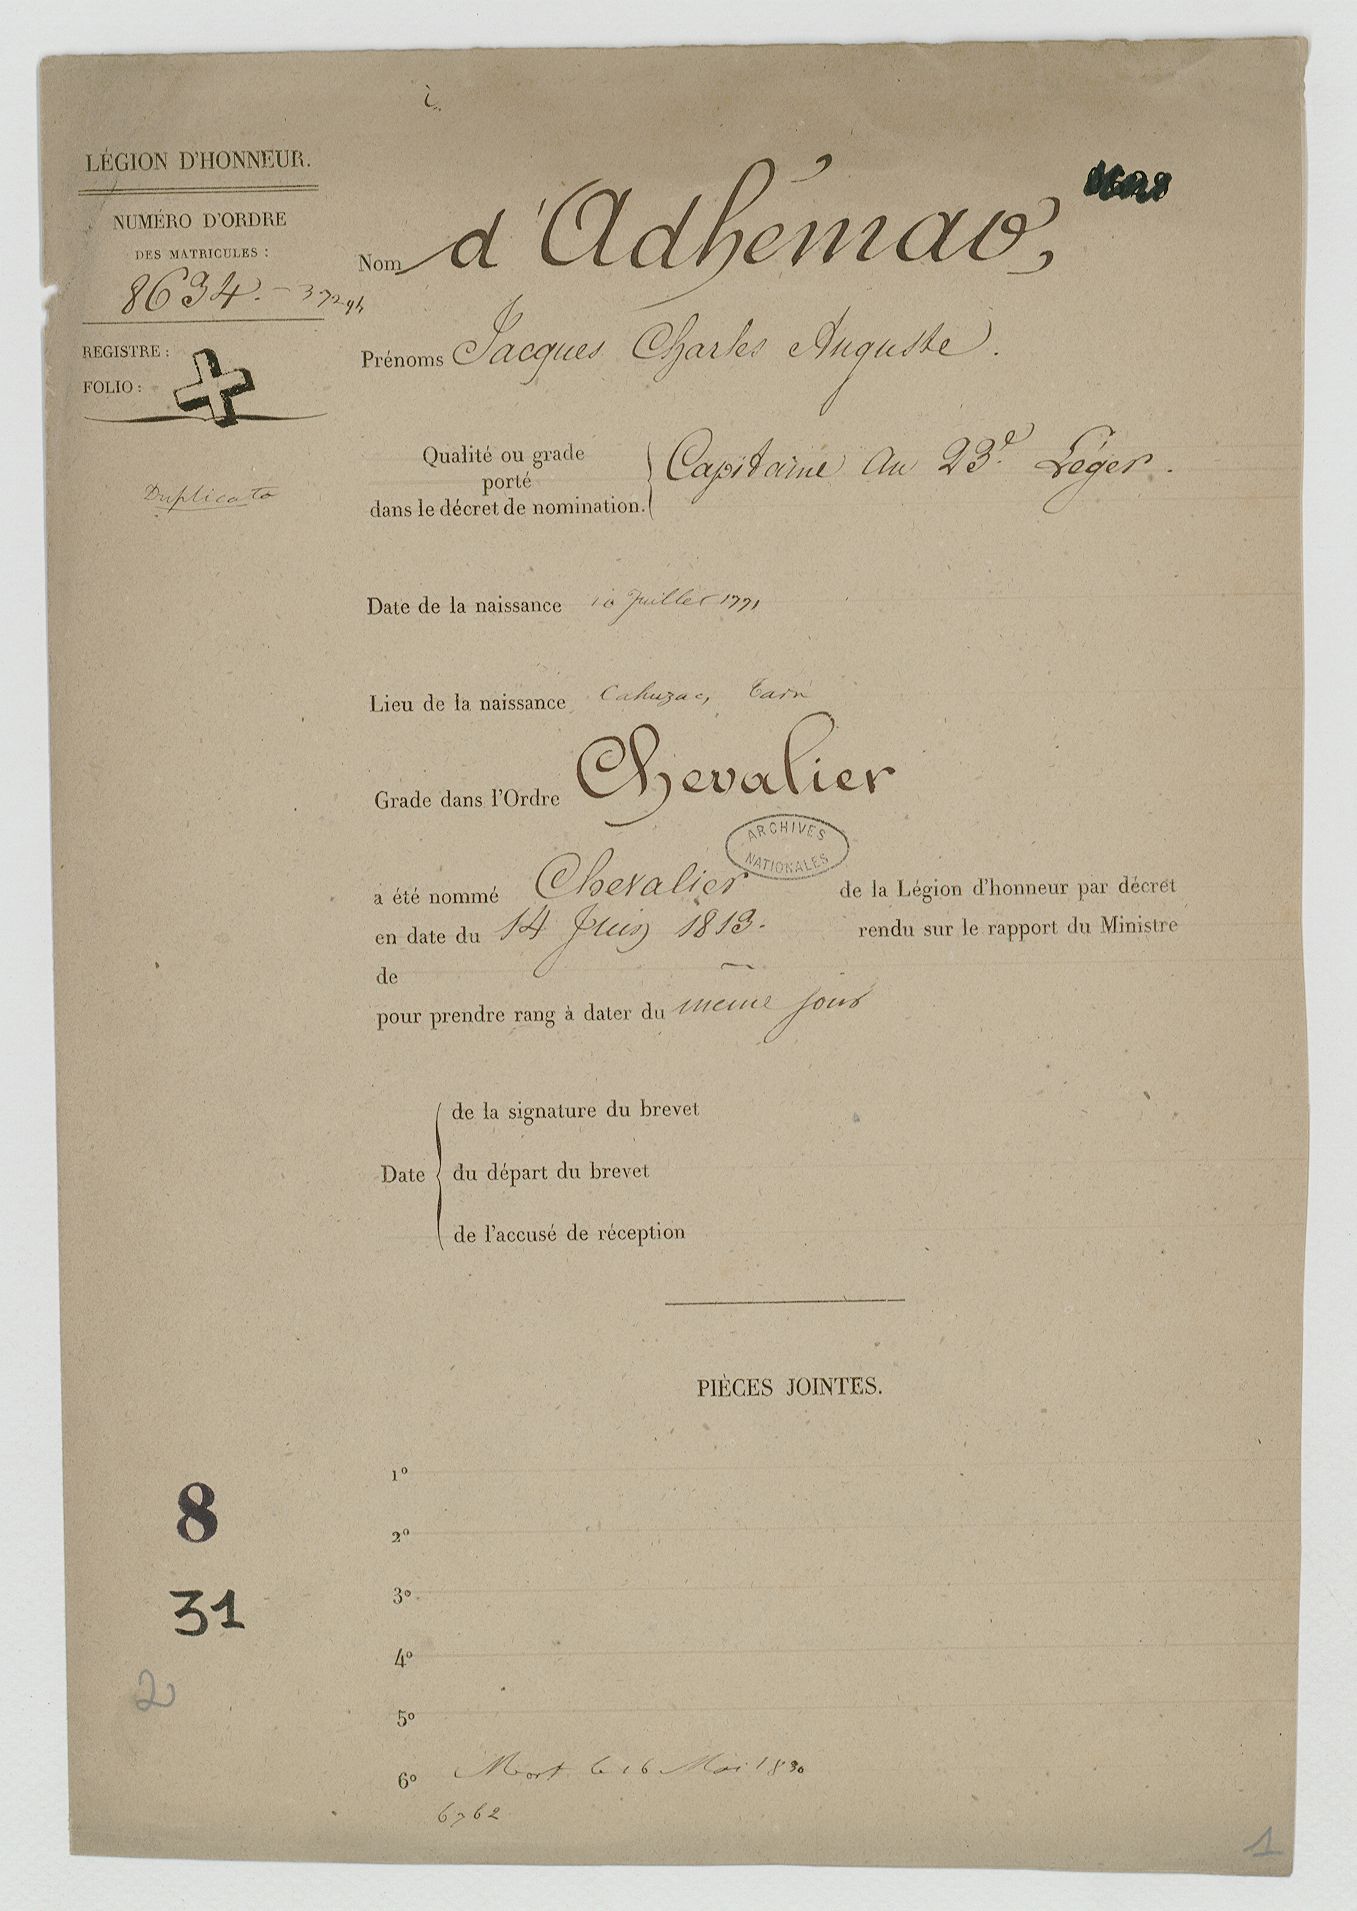 LÉGION D'HONNEUR.
NUMÉRO D'ORDRE
DES MATRICULES :
8634.
REGISTRE :
FOLIO :
Duplicata
Nom d'Adhémar,
Prénoms Jacques Charles Auguste.
Qualité ou grade
porté
dans le décret de nomination.
Capitaine au 23e Léger.
Date de la naissance 10 Juillet 1771
Lieu de la naissance Cahuzac, Tarn
Grade dans l'Ordre Chevalier
ARCHIVES
NATIONALES
a été nommé Chevalier de la Légion d'honneur par décret
en date du 14 Juin 1813. rendu sur le rapport du Ministre
de
pour prendre rang à dater du même jour
Date
de la signature du brevet
du départ du brevet
de l'accusé de réception
PIÈCES JOINTES.
1º
2º
3º
4º
5º
6º Mort le 16 Mai 1830
6762
8
31
2
1